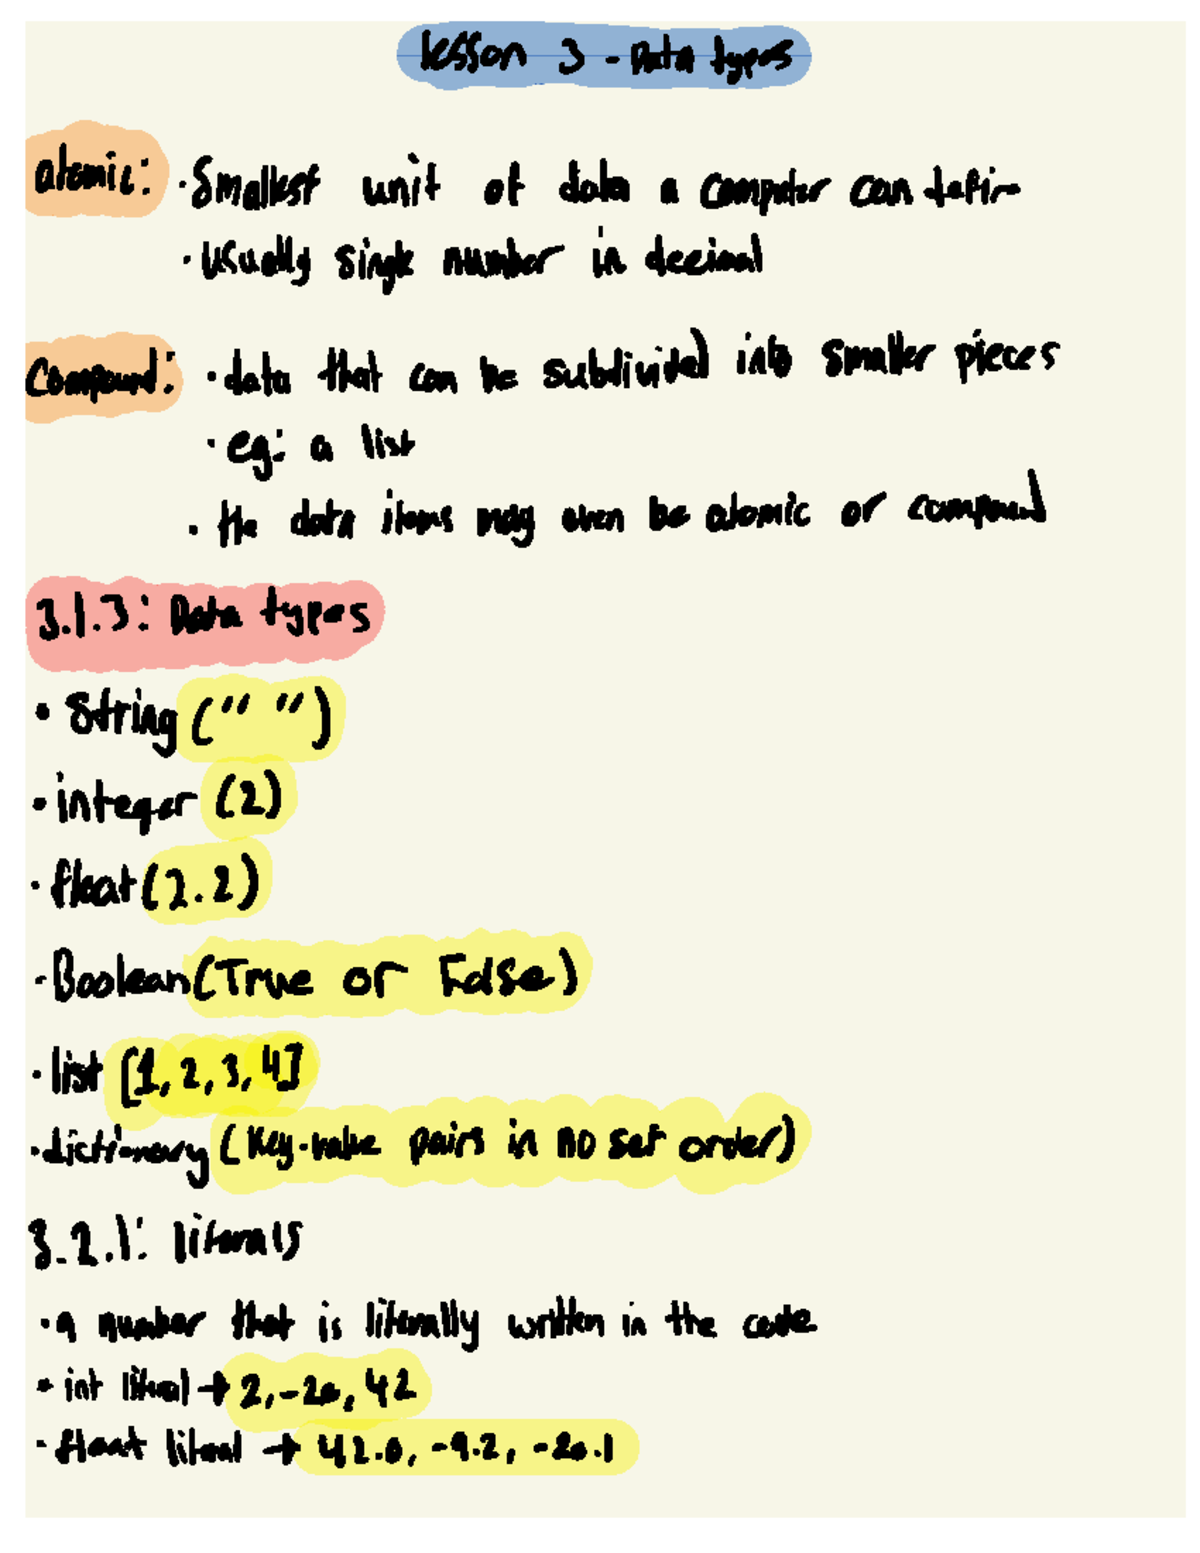 lesson 3 - Data types
atomic: · Smallest unit of data a computer can defin
· usually single number in decimal
Compound: · data that can be subdivided into smaller pieces
· eg: a list
· the data items may even be atomic or compound
3.1.3: Data types
· String (" ")
· integer (2)
· float (2.2)
- Boolean (True or False)
· list [1, 2, 3, 4]
· dictionary (key-value pairs in no set order)
3.2.1: literals
· a number that is literally written in the code
· int literal → 2, -20, 42
· float literal → 42.0, -9.2, -20.1